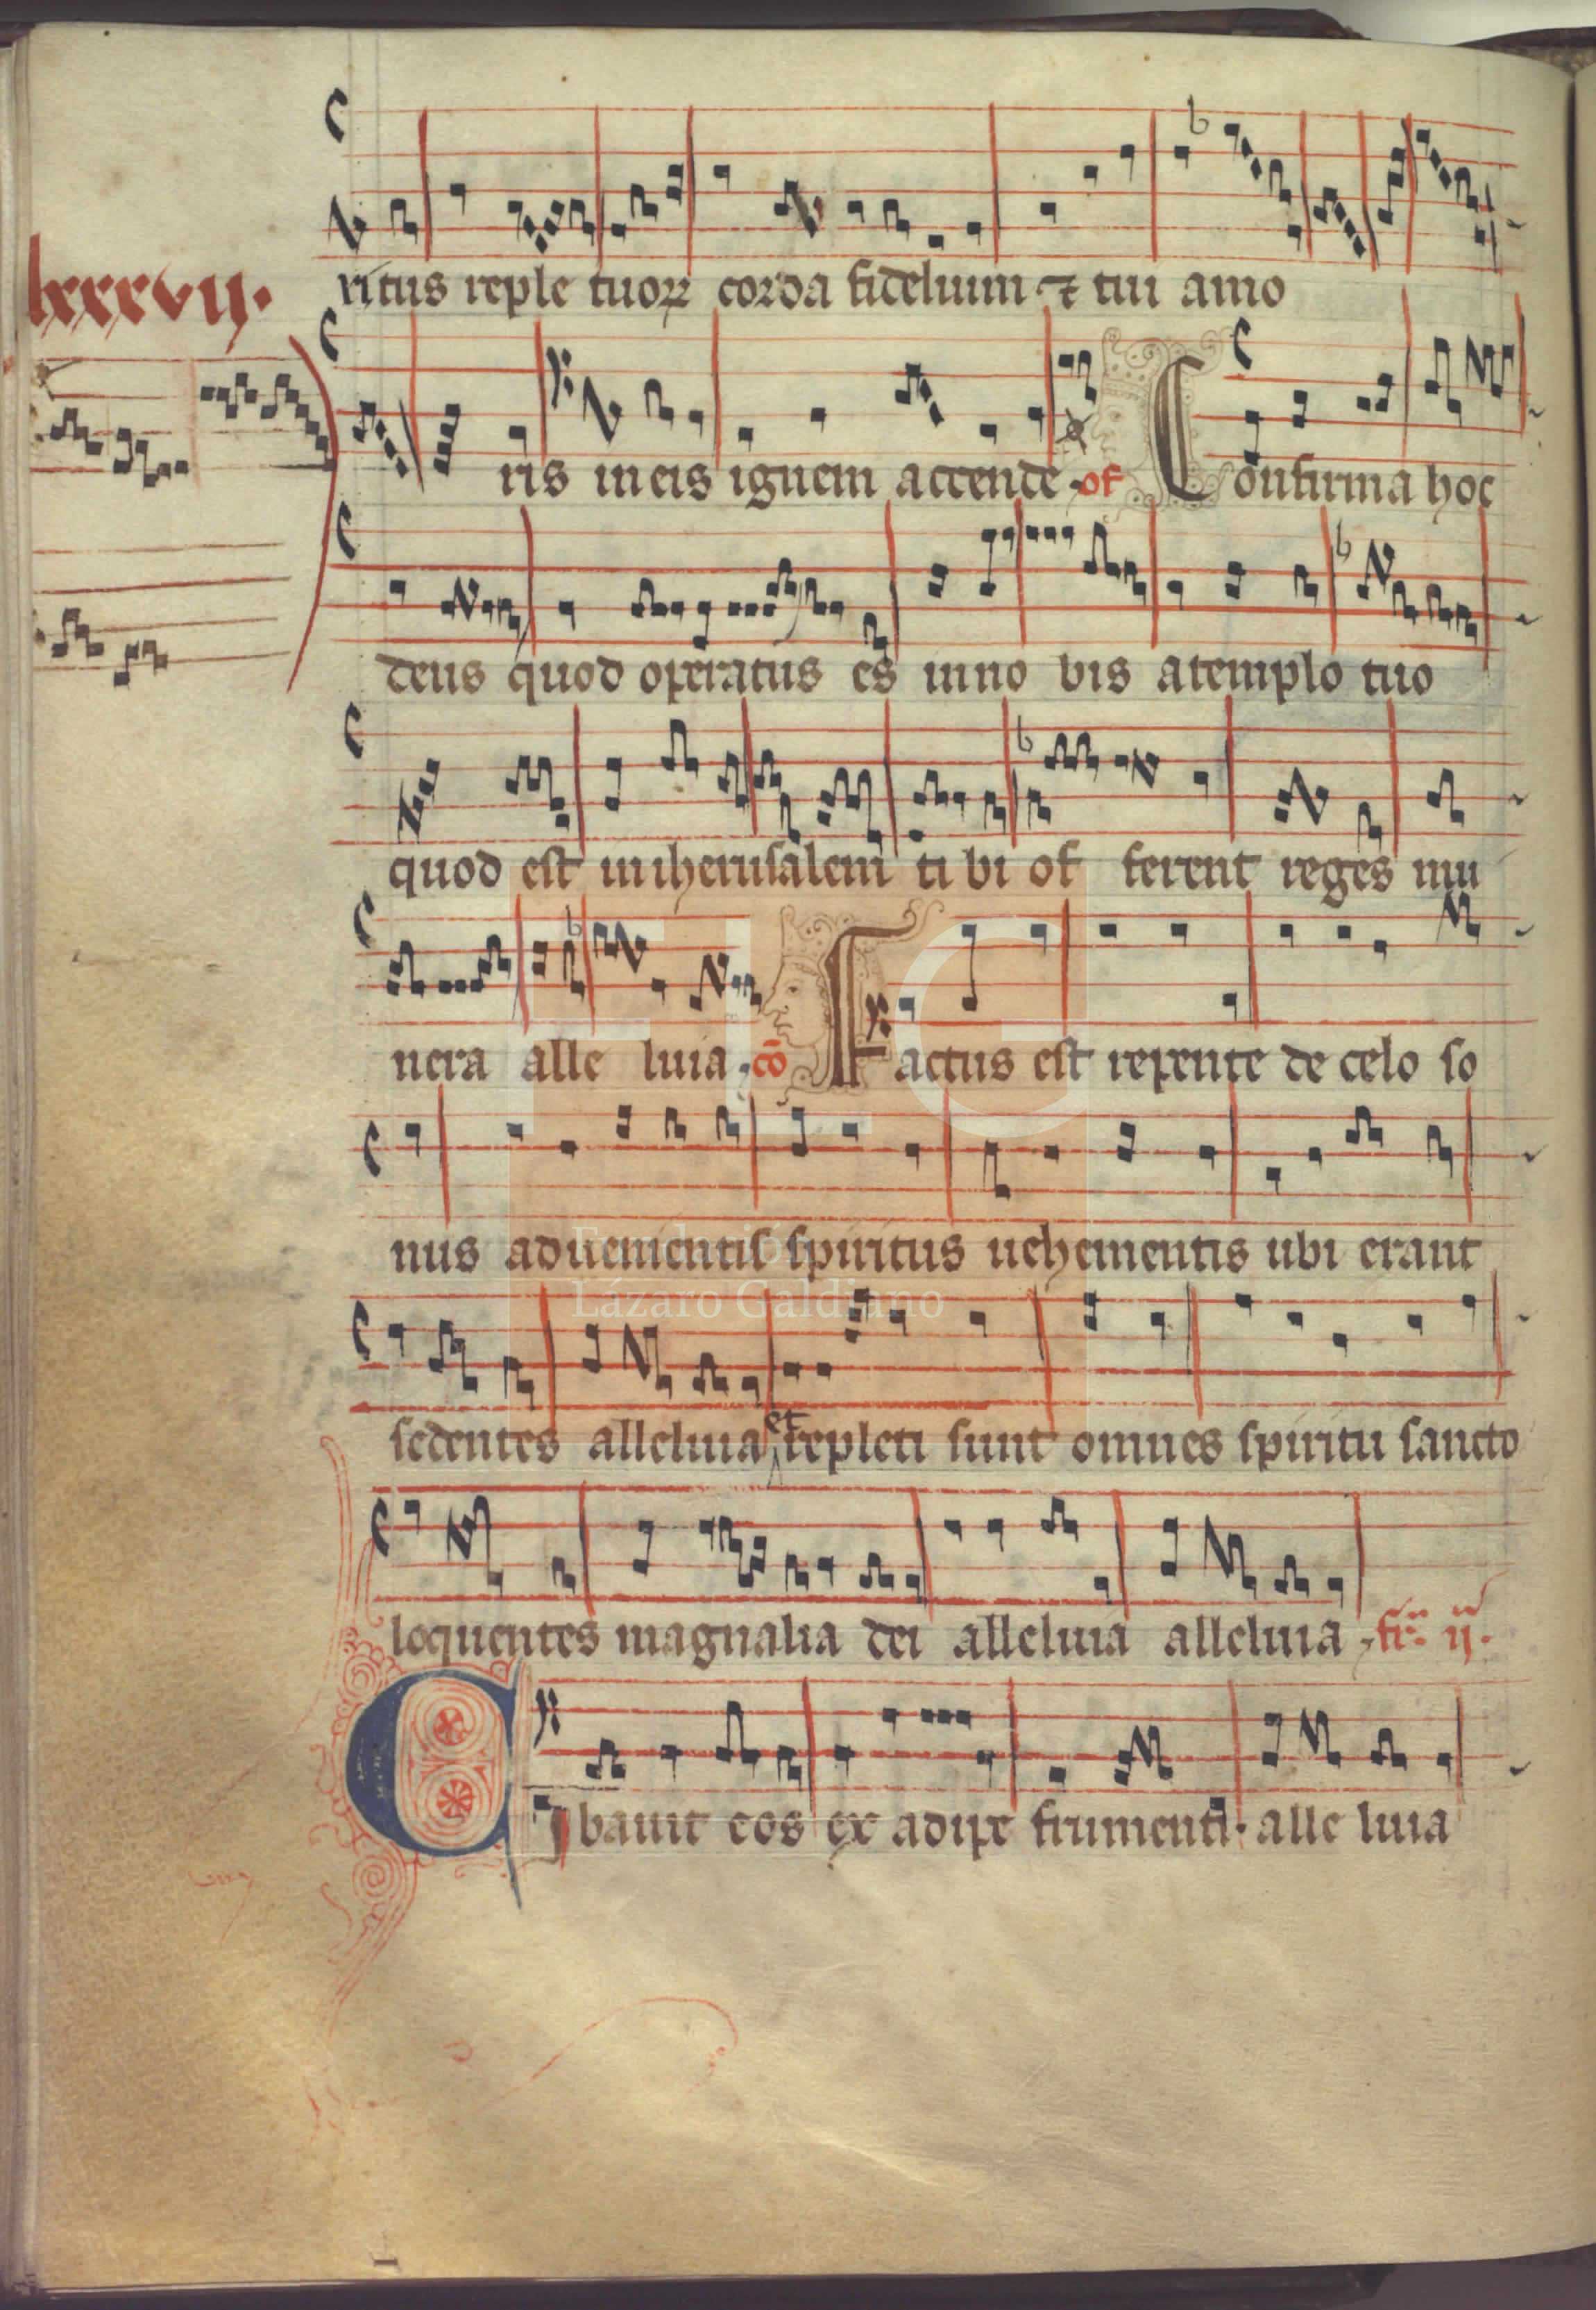 lxxxvii.
ritus reple tuoꝝ corda fidelium ⁊ tui amo
ris in eis ignem accende of Confirma hoc
deus quod operatus es in no bis a templo tuo
quod est in iherusalem ti bi of ferent reges mu
nera alle luia. cō Factus est repente de celo so
nus aduenientis spiritus uehementis ubi erant
sedentes alleluia et repleti sunt omnes spiritu sancto
loquentes magnalia dei alleluia alleluia. fr̄. ii.
CIbauit eos ex adipe frumenti. alle luia
FLG
Fundación
Lázaro Galdiano